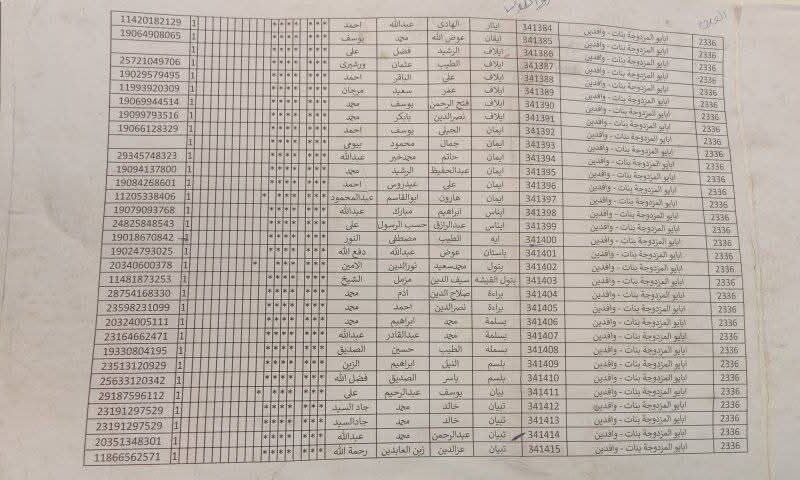 2336 ابايو المزدوجة بنات - وافدين 341384 ايثار الهادى عبدالله احمد *** **** 1 11420182129
2336 ابايو المزدوجة بنات - وافدين 341385 ايقان عوض الله محمد يوسف *** **** 1 19064908065
2336 ابايو المزدوجة بنات - وافدين 341386 ايلاف الرشيد فضل على *** **** 1
2336 ابايو المزدوجة بنات - وافدين 341387 ايلاف الطيب عثمان ورشيرى *** **** 1 25721049706
2336 ابايو المزدوجة بنات - وافدين 341388 ايلاف على الباقر احمد *** **** 1 19029579495
2336 ابايو المزدوجة بنات - وافدين 341389 ايلاف عمر سعيد مرجان *** **** 1 11993920309
2336 ابايو المزدوجة بنات - وافدين 341390 ايلاف فتح الرحمن يوسف محمد *** **** 1 19069944514
2336 ابايو المزدوجة بنات - وافدين 341391 ايلاف نصرالدين بابكر محمد *** **** 1 19099793516
2336 ابايو المزدوجة بنات - وافدين 341392 ايمان الجيلى يوسف احمد *** **** 1 19066128329
2336 ابايو المزدوجة بنات - وافدين 341393 ايمان جمال محمود بيومى *** **** 1
2336 ابايو المزدوجة بنات - وافدين 341394 ايمان حاتم محمدخير عبدالله *** **** 1 29345748323
2336 ابايو المزدوجة بنات - وافدين 341395 ايمان عبدالحفيظ الرشيد محمد *** **** 1 19094137800
2336 ابايو المزدوجة بنات - وافدين 341396 ايمان على عيدروس احمد *** **** 1 19084268601
2336 ابايو المزدوجة بنات - وافدين 341397 ايمان هارون ابوالقاسم عبدالمحمود *** **** * 1 11205338406
2336 ابايو المزدوجة بنات - وافدين 341398 ايناس ابراهيم مبارك عبدالله *** **** 1 19079093768
2336 ابايو المزدوجة بنات - وافدين 341399 ايناس عبدالرازق حسب الرسول على *** **** 1 24825848543
2336 ابايو المزدوجة بنات - وافدين 341400 ايه الطيب مصطفى النور *** **** 1 19018670842
2336 ابايو المزدوجة بنات - وافدين 341401 باستان عوض عبدالله دفع الله *** **** 1 19024793025
2336 ابايو المزدوجة بنات - وافدين 341402 بتول محمدسعيد نورالدين الامين *** **** * 1 20340600378
2336 ابايو المزدوجة بنات - وافدين 341403 بتول القيشه سيف الدين مزمل الشيخ *** **** 1 11481873253
2336 ابايو المزدوجة بنات - وافدين 341404 براءة صلاح الدين ادم محمد *** **** 1 28754168330
2336 ابايو المزدوجة بنات - وافدين 341405 براءة نصرالدين احمد محمد *** **** 1 23598231099
2336 ابايو المزدوجة بنات - وافدين 341406 بسلمة محمد ابراهيم محمد *** **** 1 20324005111
2336 ابايو المزدوجة بنات - وافدين 341407 بسملة محمد عبدالقادر عبدالله *** **** 1 23164662471
2336 ابايو المزدوجة بنات - وافدين 341408 بسمله الطيب حسين الصديق *** **** 1 19330804195
2336 ابايو المزدوجة بنات - وافدين 341409 بلسم النيل ابراهيم الزين *** **** 1 23513120929
2336 ابايو المزدوجة بنات - وافدين 341410 بلسم ياسر الصديق فضل الله *** **** 1 25633120342
2336 ابايو المزدوجة بنات - وافدين 341411 بيان يوسف عبدالرحيم على *** **** * 1 29187596112
2336 ابايو المزدوجة بنات - وافدين 341412 تبيان خالد محمد جاد السيد *** **** 1 23191297529
2336 ابايو المزدوجة بنات - وافدين 341413 تبيان خالد محمد جادالسيد *** **** 1 23191297529
2336 ابايو المزدوجة بنات - وافدين 341414 تبيان عبدالرحمن محمد عبدالله *** **** 1 20351348301
2336 ابايو المزدوجة بنات - وافدين 341415 تبيان عزالدين زين العابدين رحمة الله *** **** 1 11866562571